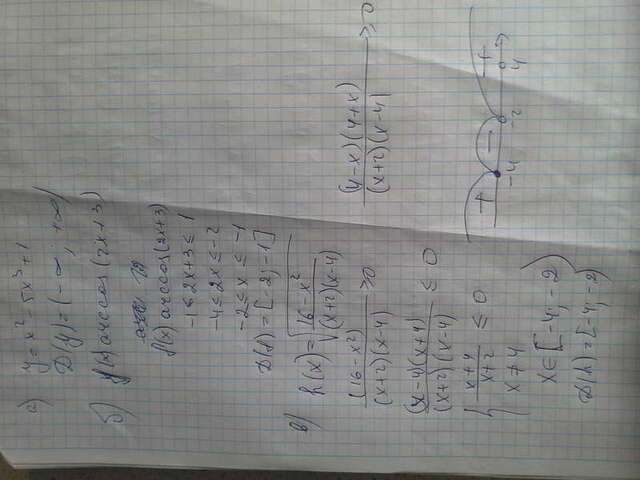 а) y = x² - 5x³ + 1
D(y) = (-∞; +∞)
б) f(x) arccos(2x+3)
f(x) arccos(2x+3)
-1 ≤ 2x+3 ≤ 1
-4 ≤ 2x ≤ -2
-2 ≤ x ≤ -1
D(f) = [-2; -1]
в) h(x) = √((16-x²)/((x+2)(x-4)))
(16-x²)/((x+2)(x-4)) ≥ 0
(4-x)(4+x)/((x+2)(x-4)) ≥ 0
(x-4)(x+4)/((x+2)(x-4)) ≤ 0
{ (x+4)/(x+2) ≤ 0
x ≠ 4
+ - +
-4 -2 4
x ∈ [-4; -2)
D(h) = [-4; -2)